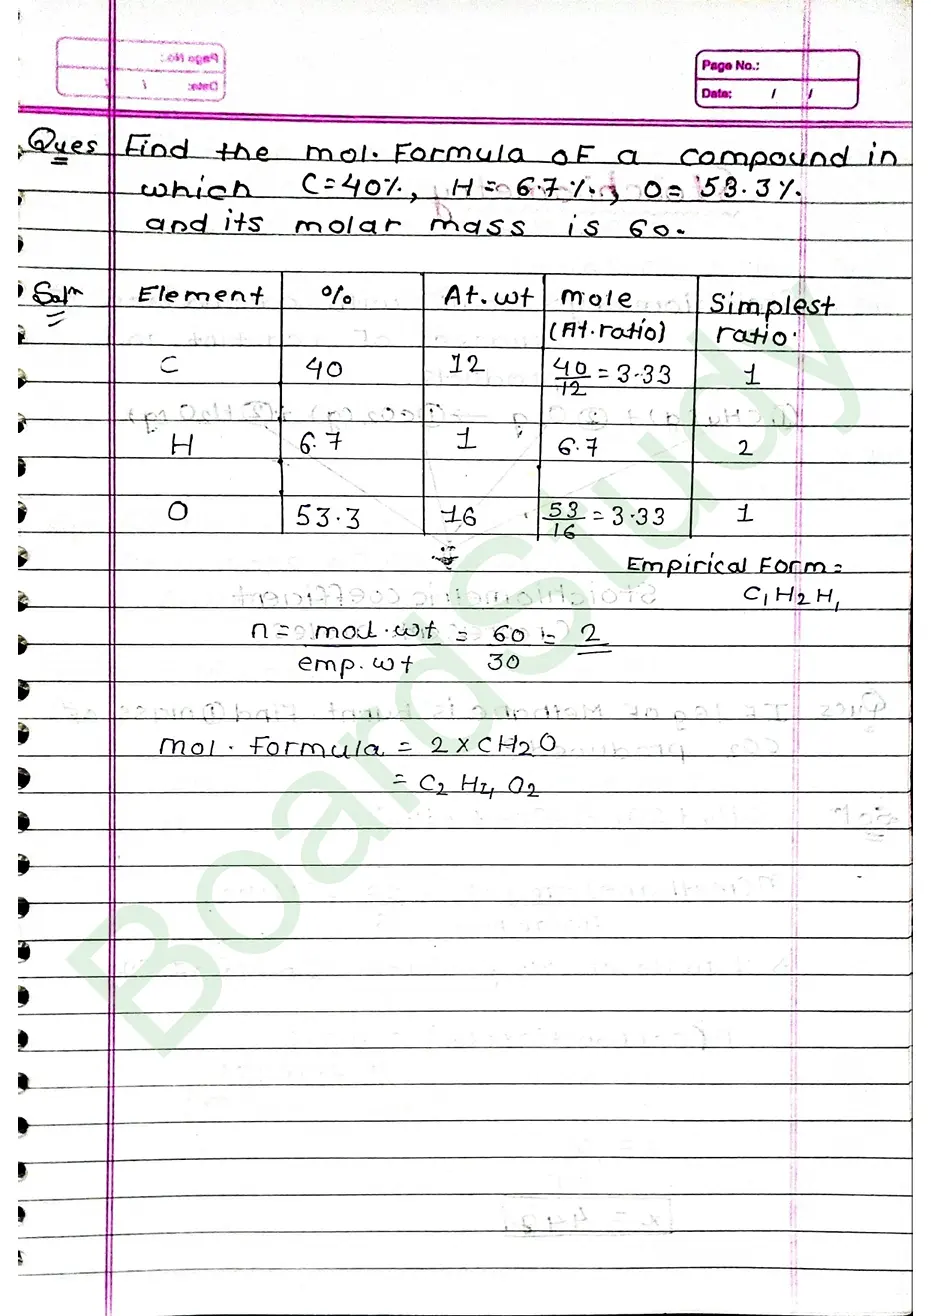 Page No.:
Date: / /
Ques Find the mol. Formula of a compound in
which C=40%, H = 6.7%, O= 53.3%
and its molar mass is 60.
Soln Element % At.wt mole Simplest
(At.ratio) ratio.
C 40 12 40/12 = 3.33 1
H 6.7 1 6.7 2
O 53.3 16 53/16 = 3.33 1
Empirical Form =
C1H2H1
n = mol.wt / emp.wt = 60/30 = 2
mol. Formula = 2 x CH2O
= C2 H4 O2
BoardStudy